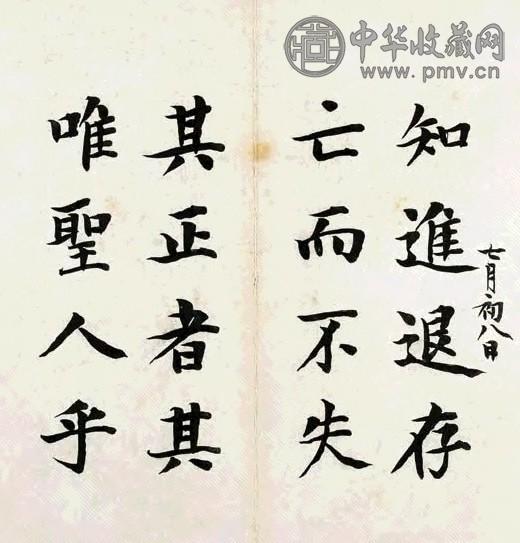 中华收藏网
www.pmv.cn
七月初八日
知進退存
亡而不失
其正者其
唯聖人乎